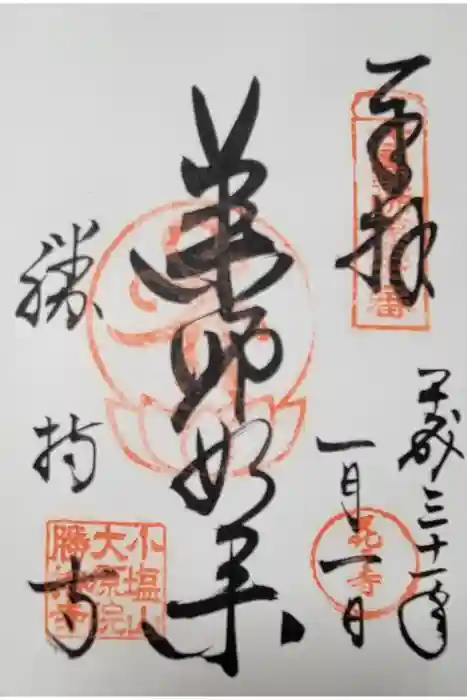 奉拝
平成三十一年
一月一日
薬師如来
勝持寺
花の寺
小塩山
大原院
勝持寺